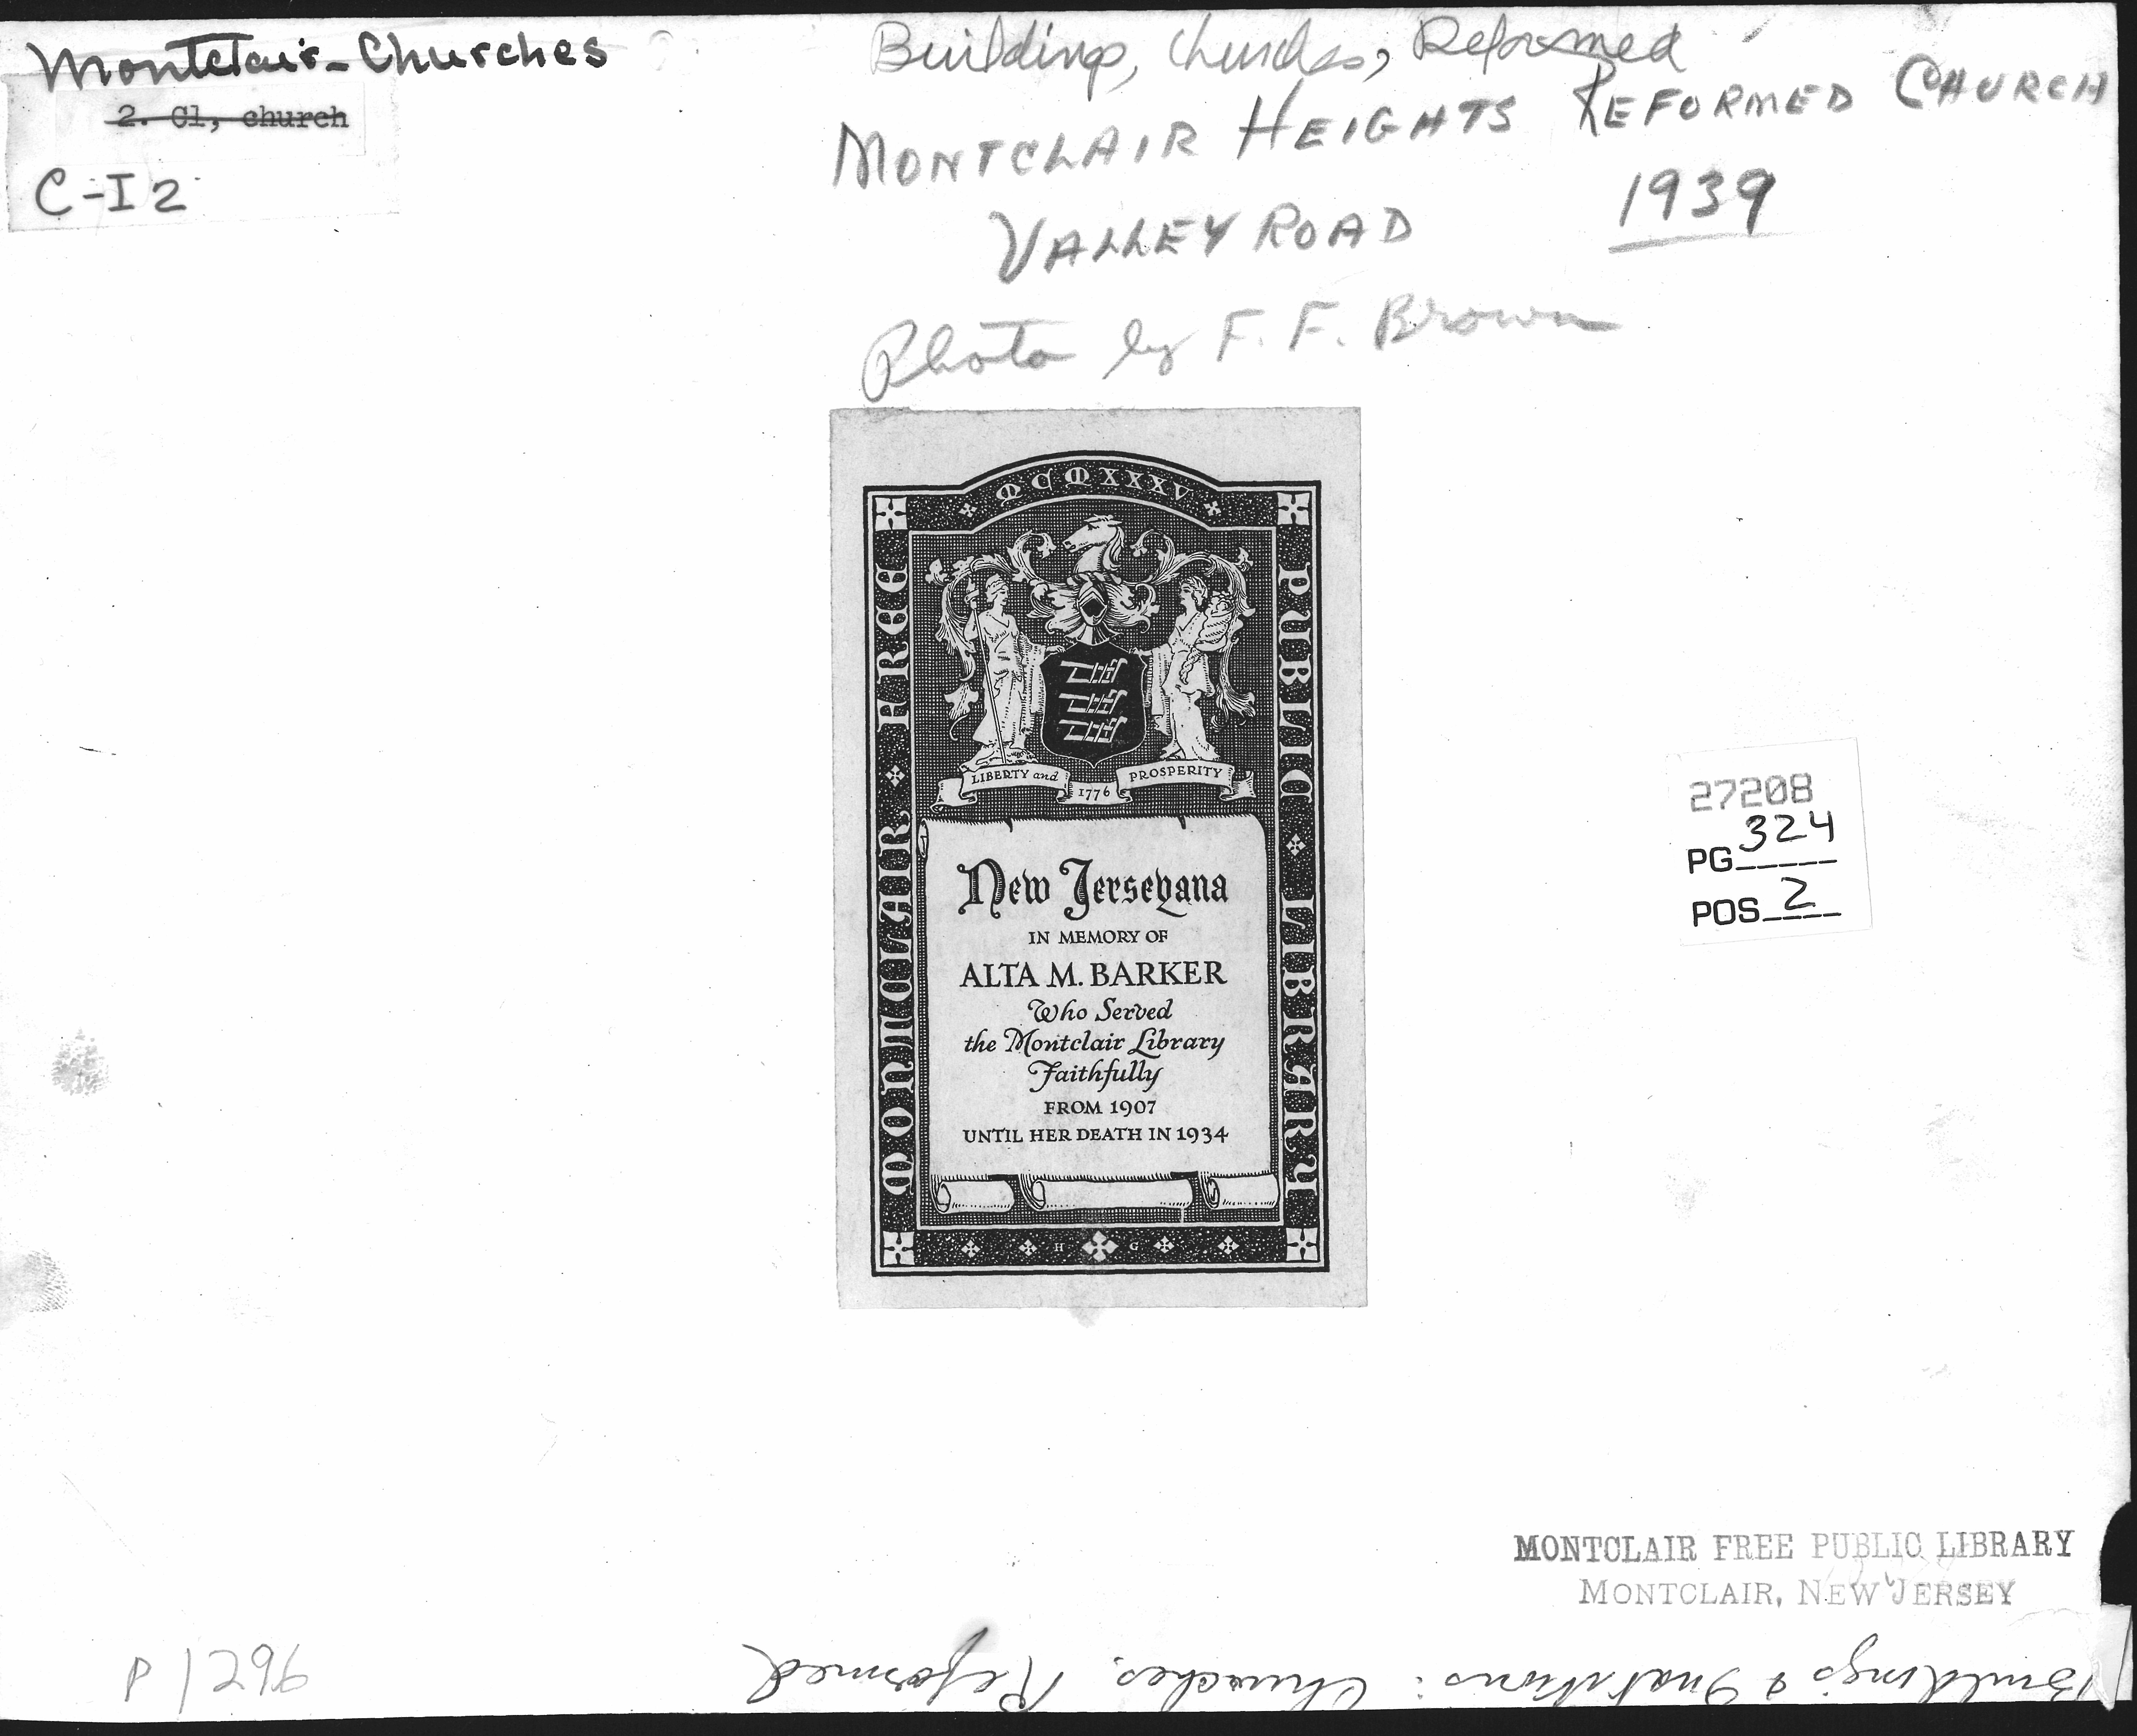 Montclair-Churches
2. Cl, church
C-I2
Buildings, Churches, Reformed
MONTCLAIR HEIGHTS REFORMED CHURCH
VALLEY ROAD 1939
Photo by F. F. Brown
MCMXXXV
MONTCLAIR FREE
PUBLIC LIBRARY
LIBERTY and PROSPERITY
1776
New Jerseyana
IN MEMORY OF
ALTA M. BARKER
Who Served
the Montclair Library
Faithfully
FROM 1907
UNTIL HER DEATH IN 1934
H G
27208
PG 324
POS 2
MONTCLAIR FREE PUBLIC LIBRARY
MONTCLAIR, NEW JERSEY
P1296
Buildings & Institutions: Churches, Reformed